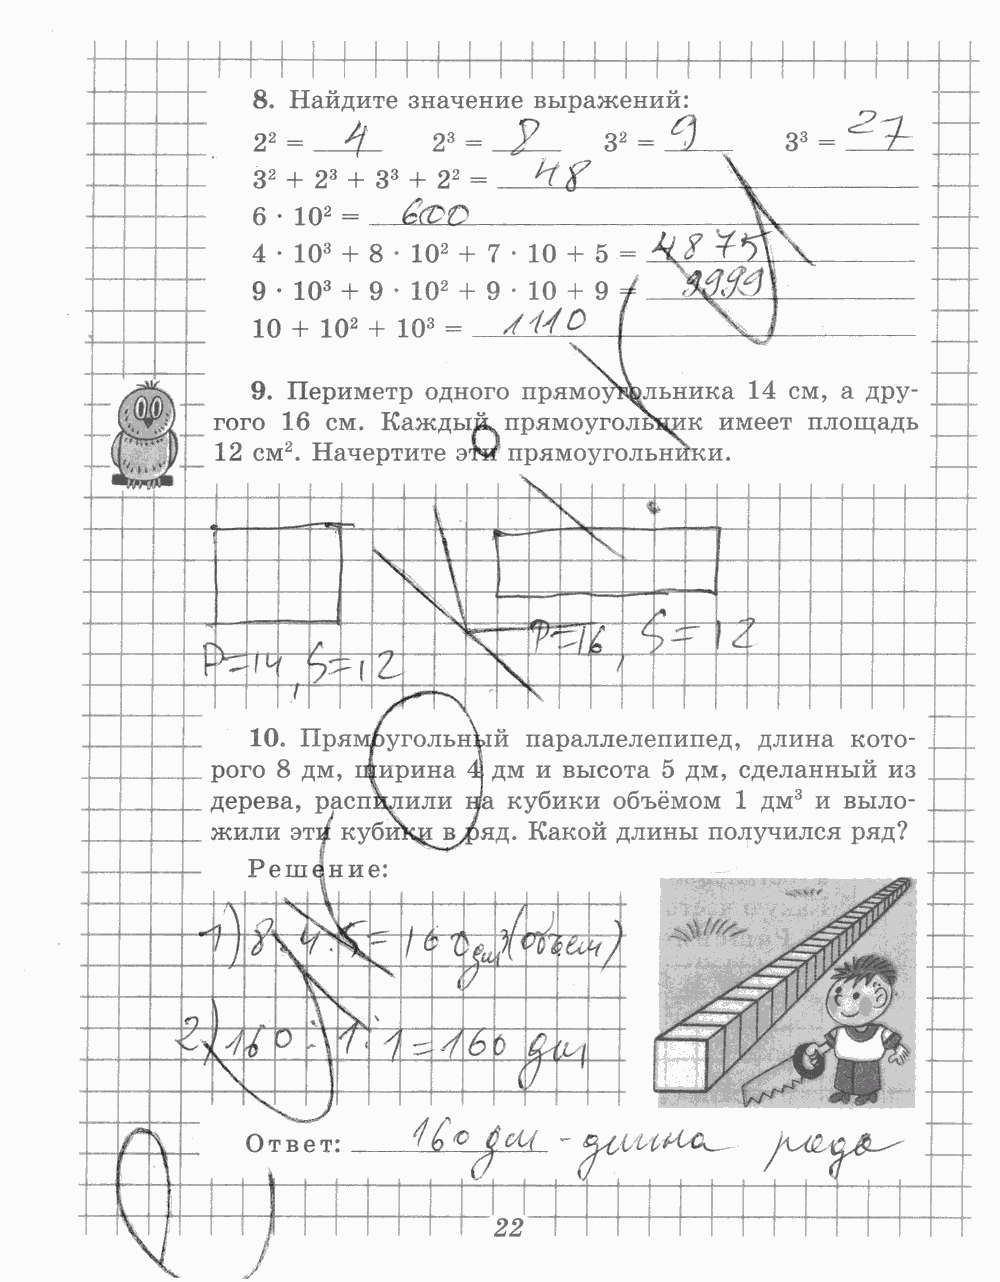 8. Найдите значение выражений:
2² = 4 2³ = 8 3² = 9 3³ = 27
3² + 2³ + 3³ + 2² = 48
6 · 10² = 600
4 · 10³ + 8 · 10² + 7 · 10 + 5 = 4875
9 · 10³ + 9 · 10² + 9 · 10 + 9 = 9999
10 + 10² + 10³ = 1110
9. Периметр одного прямоугольника 14 см, а дру-
гого 16 см. Каждый прямоугольник имеет площадь
12 см². Начертите эти прямоугольники.
P=14, S=12
P=16, S=12
10. Прямоугольный параллелепипед, длина кото-
рого 8 дм, ширина 4 дм и высота 5 дм, сделанный из
дерева, распилили на кубики объёмом 1 дм³ и выло-
жили эти кубики в ряд. Какой длины получился ряд?
Решение:
1) 8 · 4 · 5 = 160 дм³ (объем)
2) 160 : 1 : 1 = 160 дм
Ответ: 160 дм - длина ряда
22